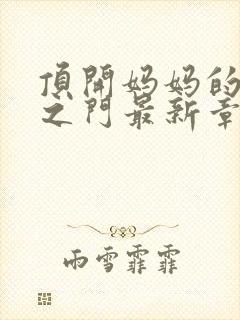 頂開妈妈的
之門最新章
雨雪霏霏